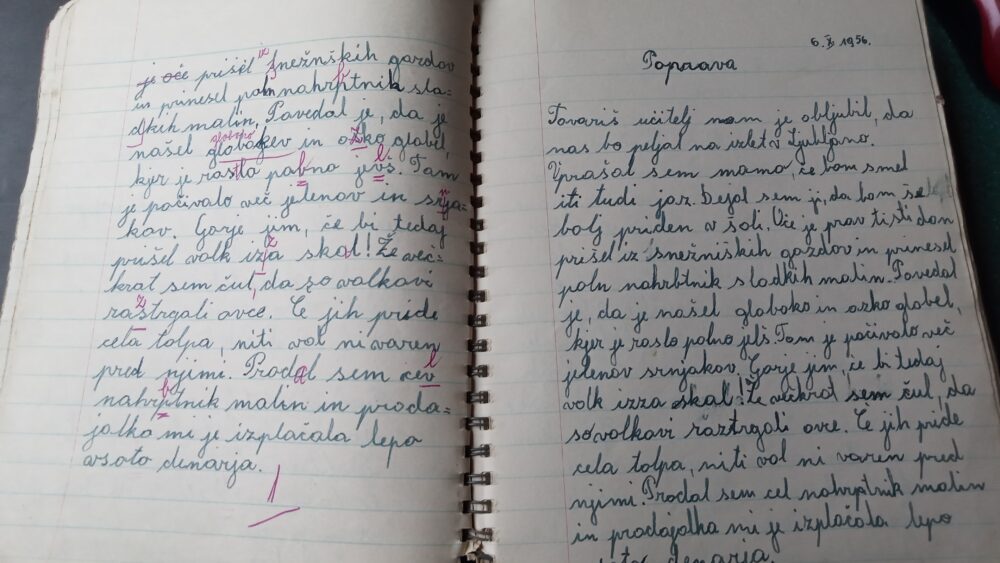 je oče prišel iz snežnških gozdov
in prinesel poln nahrptnik sla=
dkih malin. Povedal je, da je
našel globokev in ozko globel,
kjer je rastlo polno jevš. Tam
je počivalo več jelenov in srnja=
kov. Gorje jim, če bi tedaj
prišel volk izza skal! Že več=
krat sem čul, da so volkovi
raztrgali ovce. Če jih pride
cela tolpa, niti vol ni varen
pred njimi. Prodal sem cev
nahrptnik malin in proda=
jalka mi je izplačala lepo
vsoto denarja.
1
6. X. 1956.
Poprava
Tovariš učitelj nam je obljubil, da
nas bo peljal na izlet v Ljubljano.
Vprašal sem mamo, če bom smel
iti tudi jaz. Dejal sem ji, da bom še
bolj priden v šoli. Oče je prav tisti dan
prišel iz snežniških gozdov in prinesel
poln nahrbtnik sladkih malin. Povedal
je, da je našel globoko in ozko globel,
kjer je raslo polno jelš. Tam je počivalo več
jelenov srnjakov. Gorje jim, če bi tedaj
volk izza skal! Že večkrat sem čul, da
so volkovi raztrgali ovce. Če jih pride
cela tolpa, niti vol ni varen pred
njimi. Prodal sem cel nahrptnik malin
in prodajalka mi je izplačala lepo
denarja.